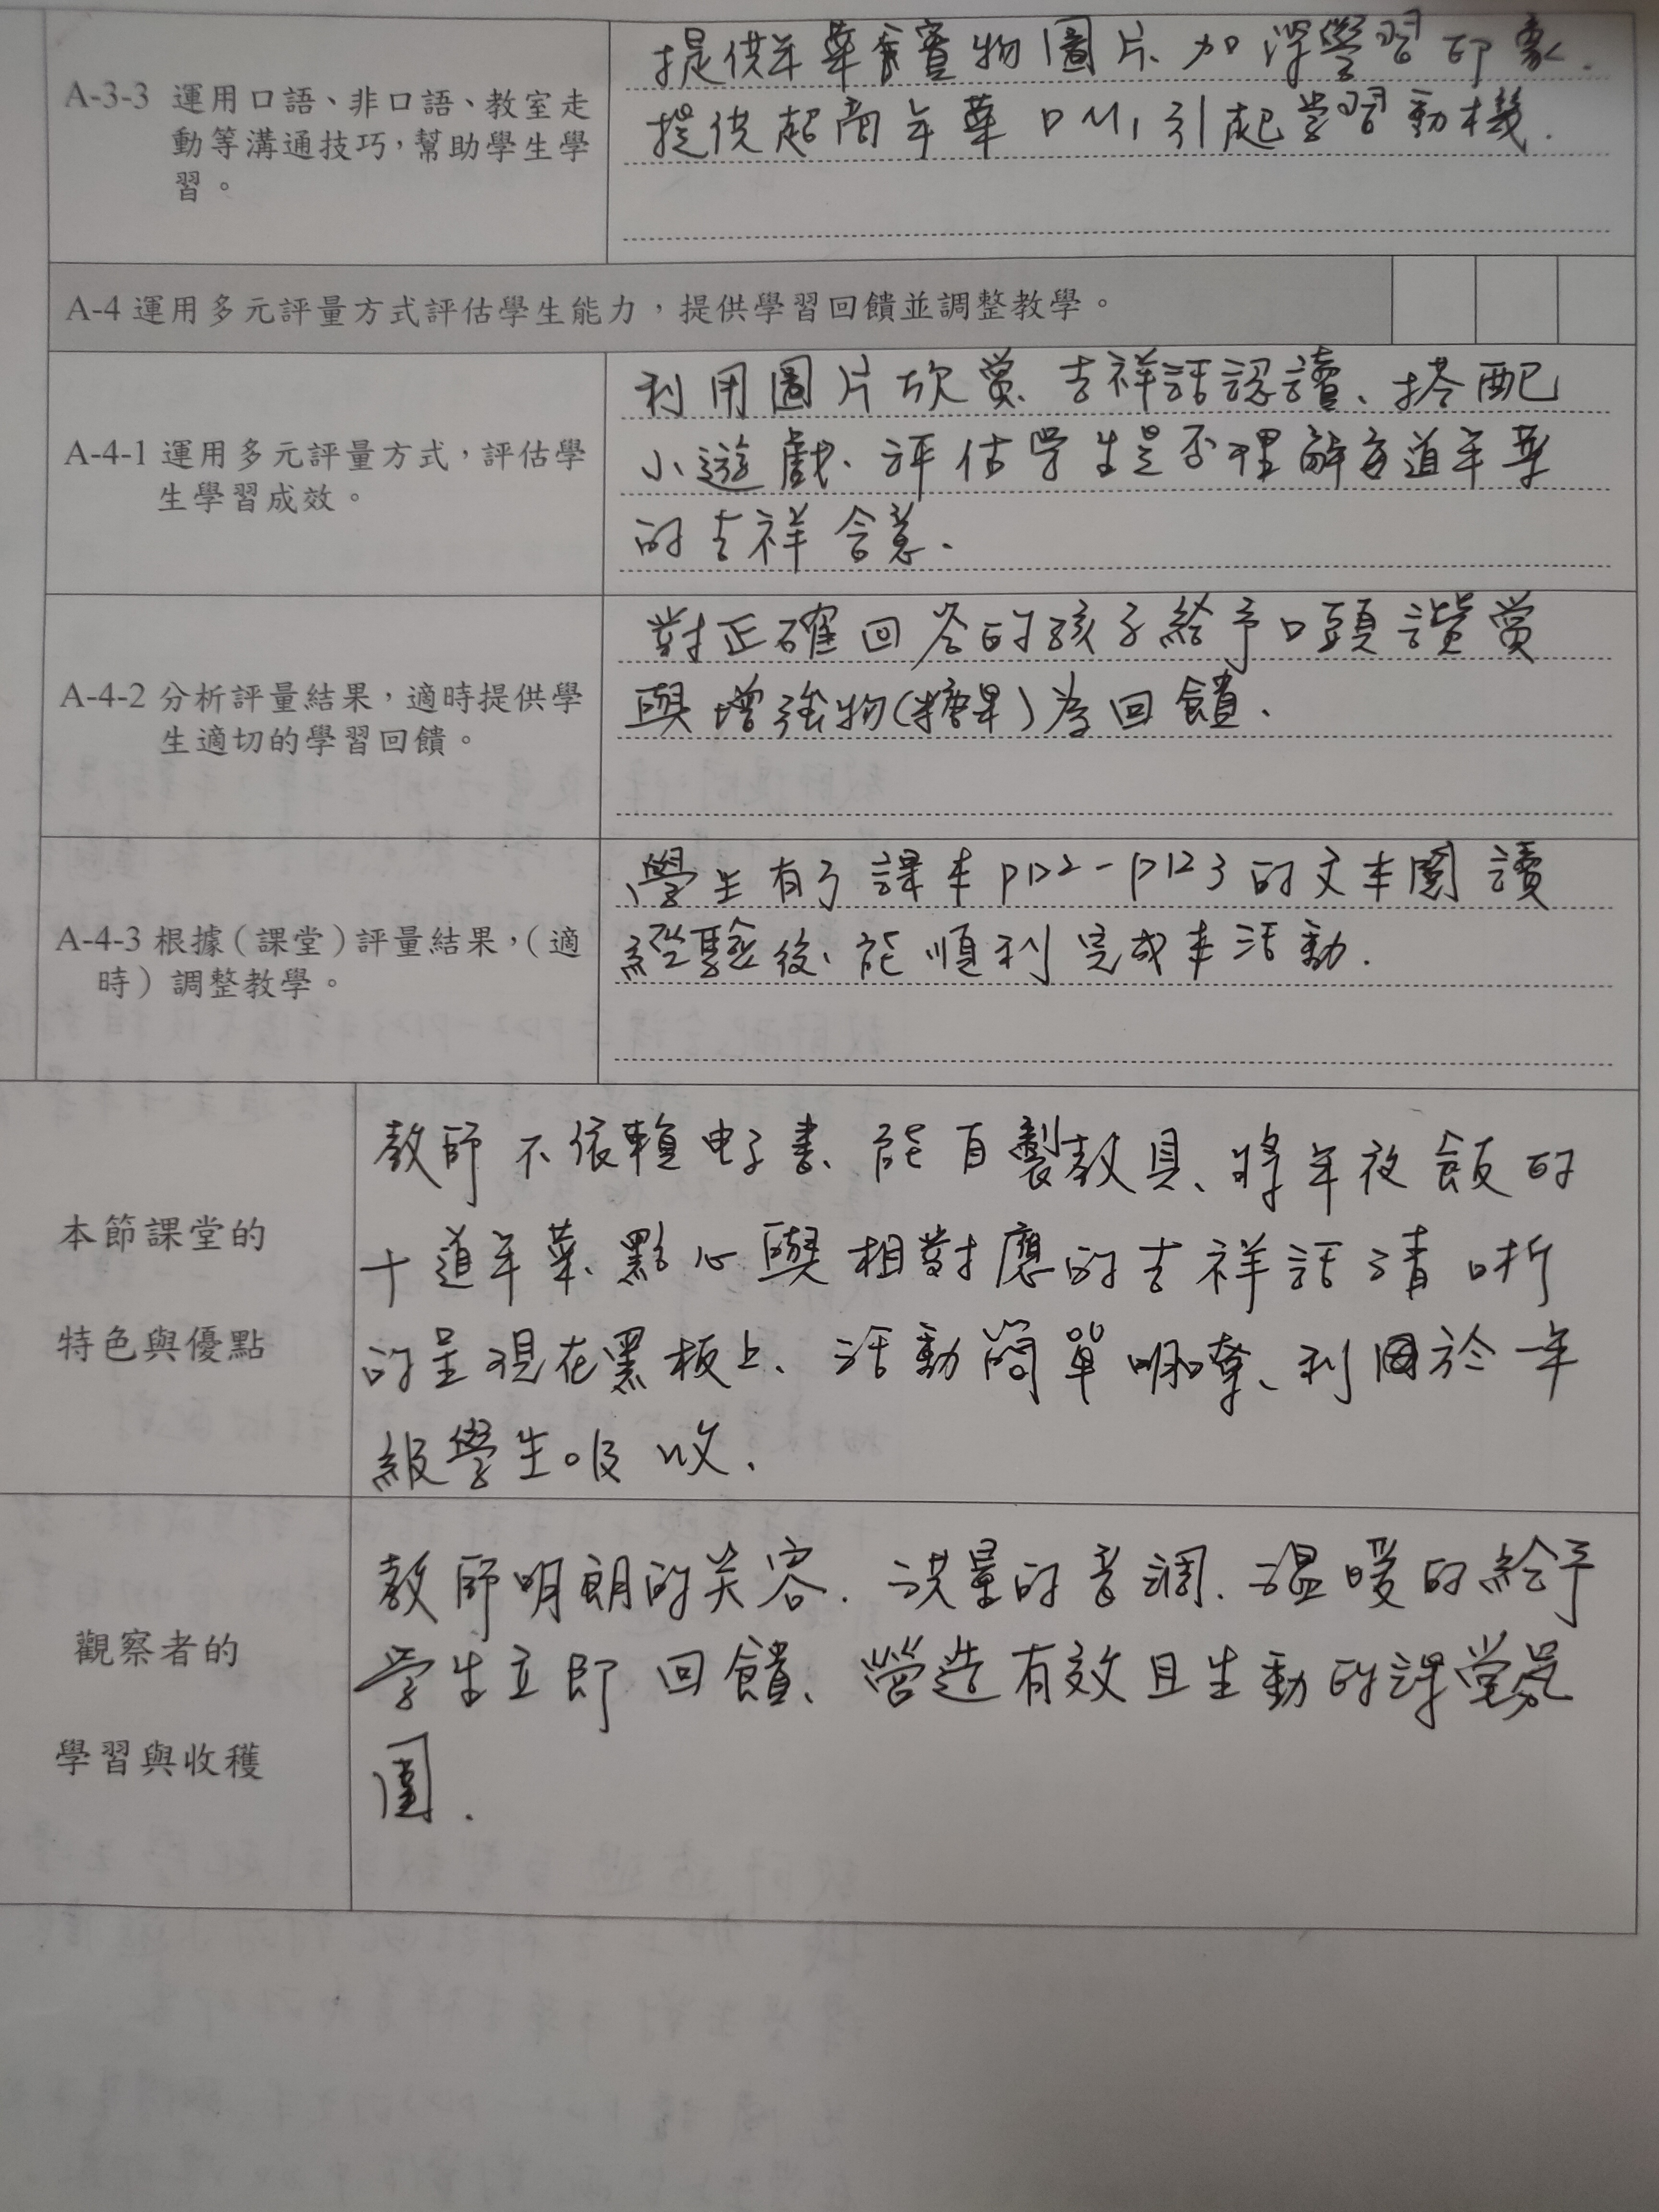 A-3-3 運用口語、非口語、教室走
動等溝通技巧，幫助學生學
習。
提供年菜實物圖片、加深學習印象.
提供超商年菜DM，引起學習動機.
A-4 運用多元評量方式評估學生能力，提供學習回饋並調整教學。
A-4-1 運用多元評量方式，評估學
生學習成效。
利用圖片欣賞、吉祥話認讀、搭配
小遊戲、評估學生是否理解每道年菜
的吉祥含意、
A-4-2 分析評量結果，適時提供學
生適切的學習回饋。
對正確回答的孩子給予口頭讚賞
與增強物(糖果)為回饋、
A-4-3 根據（課堂）評量結果，（適
時）調整教學。
學生有了課本P122-P123的文本閱讀
經驗後、能順利完成本活動.
本節課堂的
特色與優點
教師不依賴电子書、能自製教具、將年夜飯的
十道年菜、點心與相對應的吉祥話清晰
的呈現在黑板上、活動簡單明瞭、利於一年
級學生吸收、
觀察者的
學習與收穫
教師明朗的笑容、的音調、溫暖的給予
學生立即回饋、營造有效且生動的課堂氛
圍.